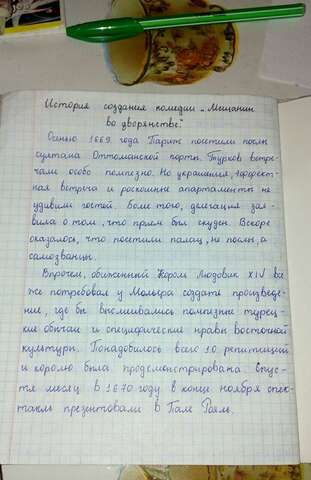 История создания комедии „Мещанин
во дворянстве"
Осенью 1669 года Париж посетили послы
султана Оттоманской порты. Турков встре-
чали особо помпезно. Но украшения, эффект-
ная встреча и роскошные апартаменты не
удивили гостей. Более того, делегация зая-
вила о том, что прём был скуден. Вскоре
оказалось, что посетили палац, не послы, а
самозванцы.
Впрочем, обиженный Король Людовик XIV
же потребовал у Мольера создать произведе-
ние, где бы высмеивались помпезные турец-
кие обычаи и специфические нравы восточной
культуры. Понадобилось всего 10 репетиций
и королю была продемонстрирована. Спус-
тя месяц в 1670 году в конце ноября спек-
такль презентовали в Пале Рояль.